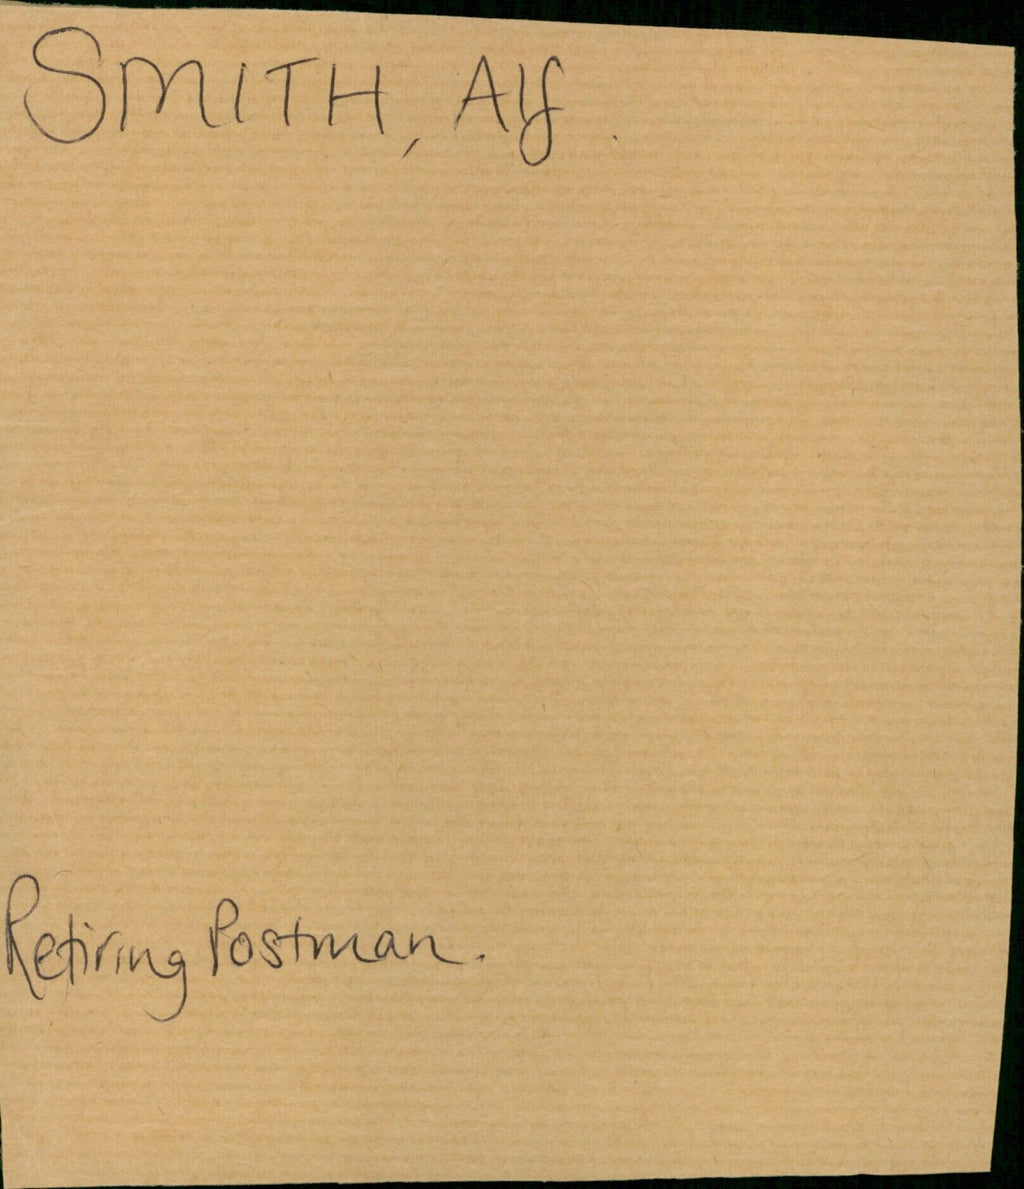 SMITH, Alf.
Retiring Postman.